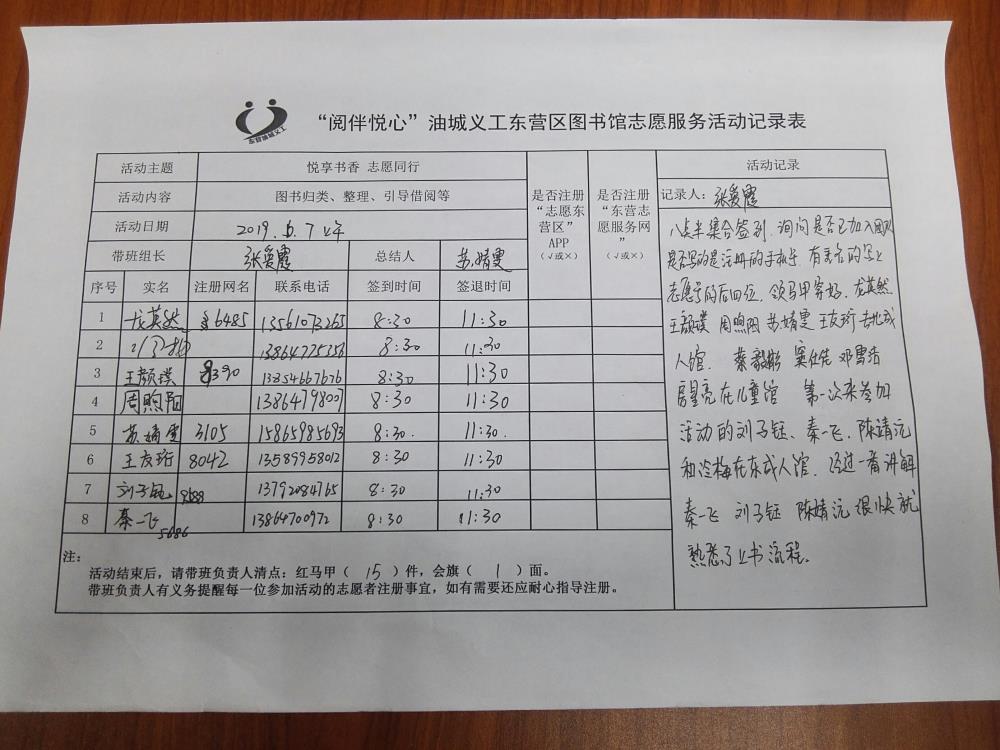 东营油城义工
“阅伴悦心”油城义工东营区图书馆志愿服务活动记录表
活动主题 悦享书香 志愿同行
活动内容 图书归类、整理、引导借阅等
活动日期 2019.6.7 上午
带班组长 张爱霞 总结人 苏婧雯
序号 实名 注册网名 联系电话 签到时间 签退时间
是否注册“志愿东营区”APP（√或×）
是否注册“东营志愿服务网”（√或×）
1 尤英然 6485 13561073265 8:30 11:30
2 13864775356 8:30 11:30
3 王颜璞 8390 13854667676 8:30 11:30
4 周煦阳 1386479800 8:30 11:30
5 苏婧雯 3105 15865985693 8:30. 11:30.
6 王友珩 8042 13589958012 8:30 11:30
7 刘子钰 13792084765 8:30 11:30
8 秦一飞 5686 13864700972 8:30 11:30
注：
活动结束后，请带班负责人清点：红马甲（ 15 ）件，会旗（ 1 ）面。
带班负责人有义务提醒每一位参加活动的志愿者注册事宜，如有需要还应耐心指导注册。
活动记录
记录人：张爱霞
八点半集合签到.询问是否已加入团队
是否写的是注册的手机号.有重名的写上
志愿号的后四位.领马甲穿好.尤英然
王颜璞 周煦阳 苏婧雯 王友珩 去北成
人馆. 蔡毅彬 窦仕佳 邓雪洁
星亮在儿童馆 第一次来参加
活动的刘子钰、秦一飞、陈婧沅
和冷梅在东成人馆.经过一番讲解
秦一飞 刘子钰 陈婧沅很快就
熟悉了上书流程.